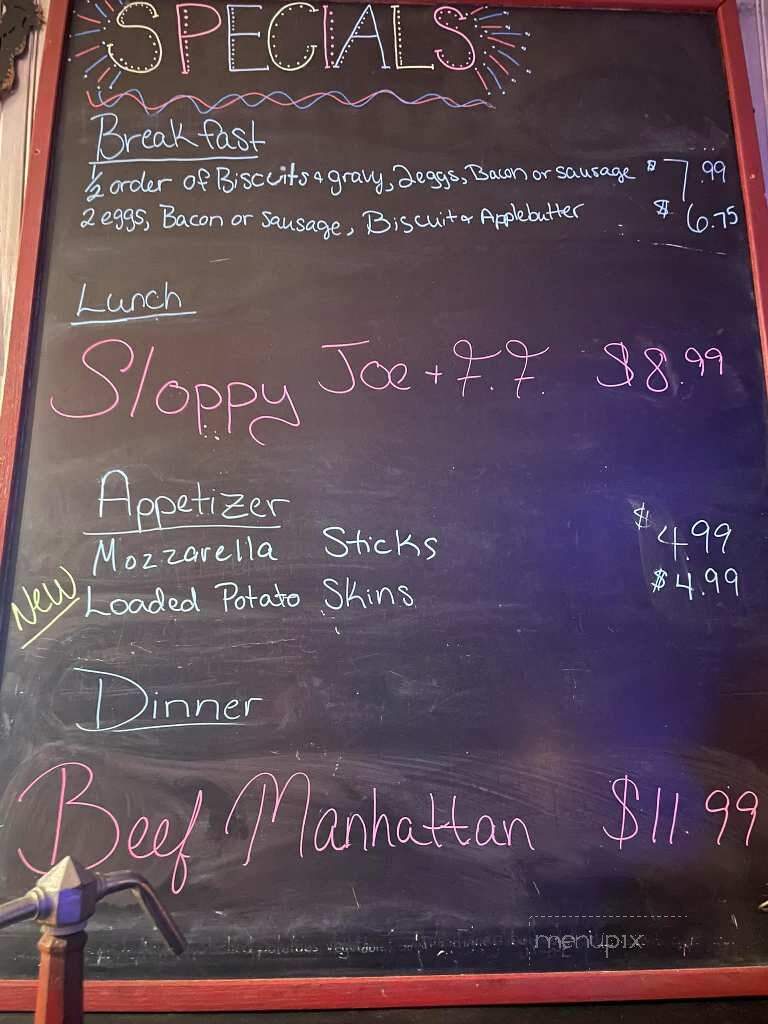 SPECIALS
Breakfast
1/2 order of Biscuits & gravy, 2 eggs, Bacon or sausage $7.99
2 eggs, Bacon or Sausage, Biscuit & Applebutter $6.75
Lunch
Sloppy Joe + F.F. $8.99
Appetizer
Mozzarella Sticks $4.99
New Loaded Potato Skins $4.99
Dinner
Beef Manhattan $11.99
menupix